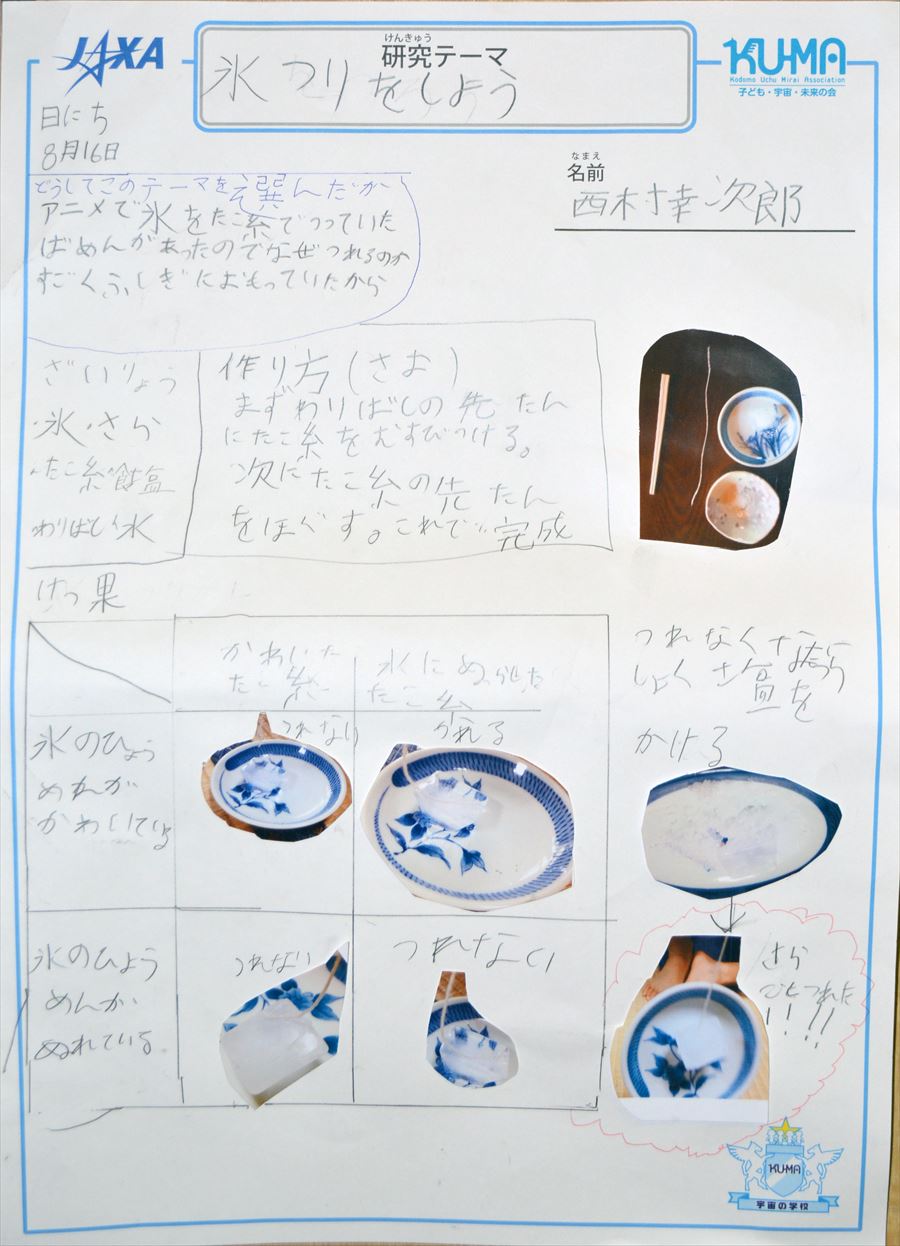 JAXA
けんきゅう
研究テーマ
氷つりをしよう
KU-MA
Kodomo Uchu Mirai Association
子ども・宇宙・未来の会
日にち
8月16日
なまえ
名前
西村幸次郎
どうしてこのテーマを選んだか
アニメで氷をたこ糸でつっていた
ばめんがあったのでなぜつれるのか
すごくふしぎにおもっていたから
ざいりょう
・氷・さら
・たこ糸・食塩
わりばし・水
作り方(さお)
まずわりばしの先たん
にたこ糸をむすびつける。
次にたこ糸の先たん
をほぐす。これで完成
けっ果
かわいた
たこ糸
水にぬらした
たこ糸
氷のひょう
めんが
かわいている
つれない
つれる
氷のひょう
めんか
ぬれている
つれない
つれない
つれなくなったら
しょく塩を
かける
さら
ごとつれた
!!!!
KU-MA
宇宙の学校